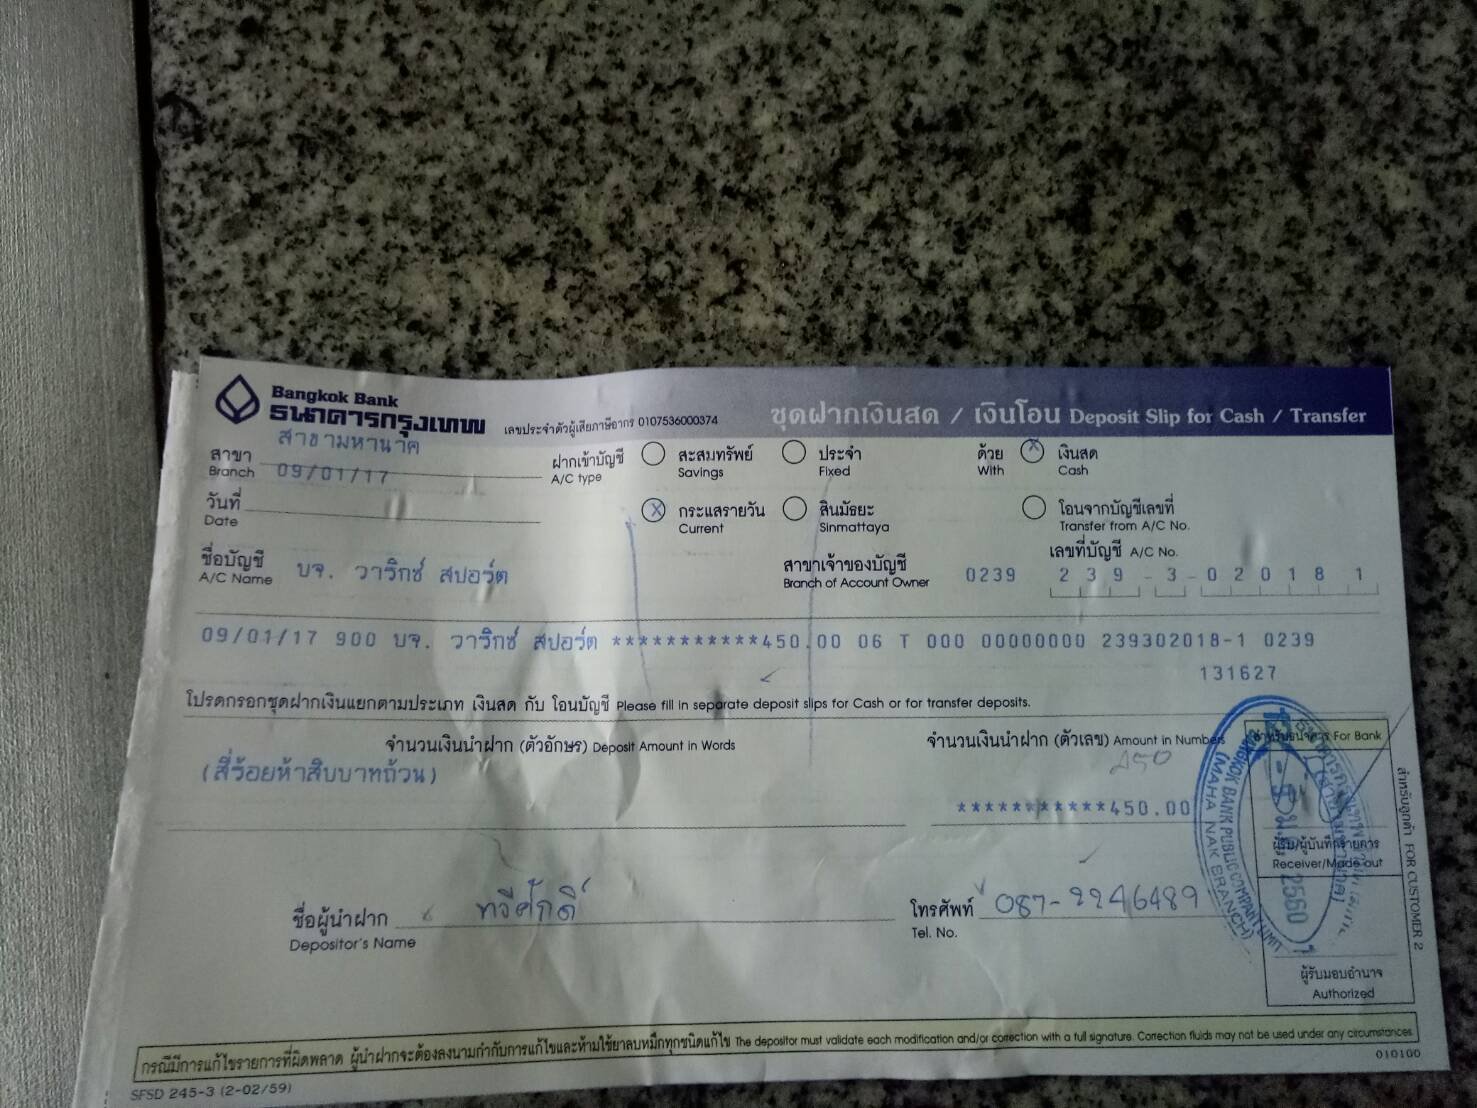 Bangkok Bank
ธนาคารกรุงเทพ
เลขประจำตัวผู้เสียภาษีอากร 0107536000374
ชุดฝากเงินสด / เงินโอน Deposit Slip for Cash / Transfer
สาขามหานาค
สาขา
Branch
09/01/17
ฝากเข้าบัญชี
A/C type
สะสมทรัพย์
Savings
ประจำ
Fixed
ด้วย
With
X
เงินสด
Cash
วันที่
Date
X
กระแสรายวัน
Current
สินมัธยะ
Sinmattaya
โอนจากบัญชีเลขที่
Transfer from A/C No.
ชื่อบัญชี
A/C Name
บจ. วาริกซ์ สปอร์ต
สาขาเจ้าของบัญชี
Branch of Account Owner
0239
เลขที่บัญชี A/C No.
239-3-02018 1
09/01/17 900 บจ. วาริกซ์ สปอร์ต ***********450.00 06 T 000 00000000 239302018-1 0239
131627
โปรดกรอกชุดฝากเงินแยกตามประเภท เงินสด กับ โอนบัญชี Please fill in separate deposit slips for Cash or for transfer deposits.
จำนวนเงินนำฝาก (ตัวอักษร) Deposit Amount in Words
จำนวนเงินนำฝาก (ตัวเลข) Amount in Numbers
สำหรับธนาคาร For Bank
450
(สี่ร้อยห้าสิบบาทถ้วน)
***********450.00
BANGKOK BANK PUBLIC COMPANY LIMITED
(MAHA NAK BRANCH)
2560
ผู้รับ/ผู้บันทึกรายการ
Receiver/Made out
ชื่อผู้นำฝาก
Depositor's Name
ทวีศักดิ์
โทรศัพท์
Tel. No.
087-2246489
ผู้รับมอบอำนาจ
Authorized
สำหรับลูกค้า FOR CUSTOMER 2
กรณีมีการแก้ไขรายการที่ผิดพลาด ผู้นำฝากจะต้องลงนามกำกับการแก้ไขและห้ามใช้ยาลบหมึกทุกชนิดแก้ไข The depositor must validate each modification and/or correction with a full signature. Correction fluids may not be used under any circumstances.
010100
SFSD 245-3 (2-02/59)